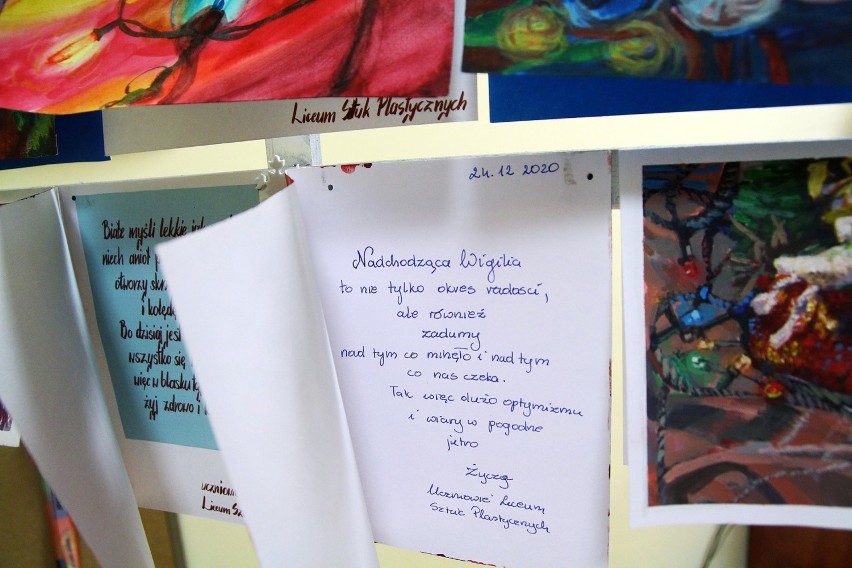 Liceum Sztuk Plastycznych
Białe myśli lekkie
niech anioł
otworzy
i kolęd
Bo dzisiaj jest
wszystko się
więc w blasku
żyj zdrowo i
Liceum
24.12 2020
Nadchodząca Wigilia
to nie tylko okres radości,
ale również
zadumy
nad tym co minęło i nad tym
co nas czeka.
Tak więc dużo optymizmu
i wiary w pogodne
jutro
Życzą
Uczniowie Liceum
Sztuk Plastycznych